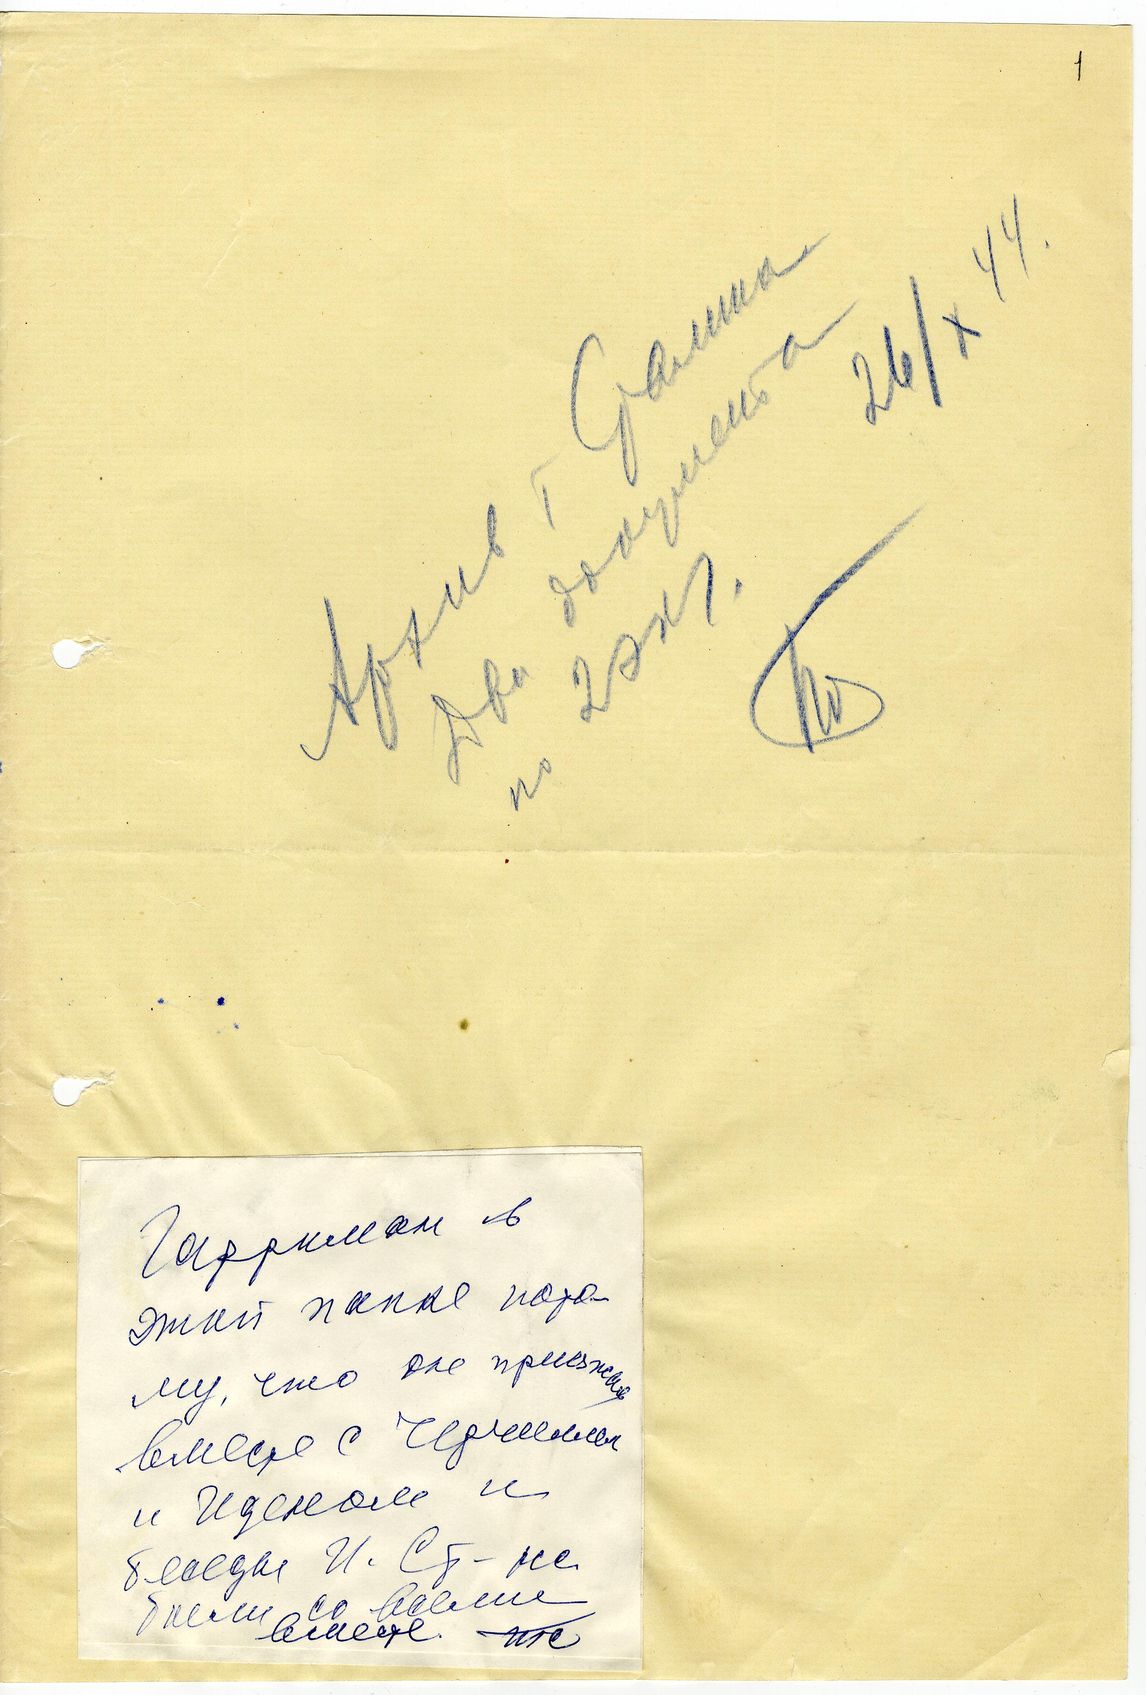 1
Архив т Сталина
Два документа
по 2 экз.
26/X 44.
Гарриман в
этой папке пото-
му, что он приезжал
вместе с Черчиллем
и Иденом и
беседы И. Ст-на
были со всеми
вместе.